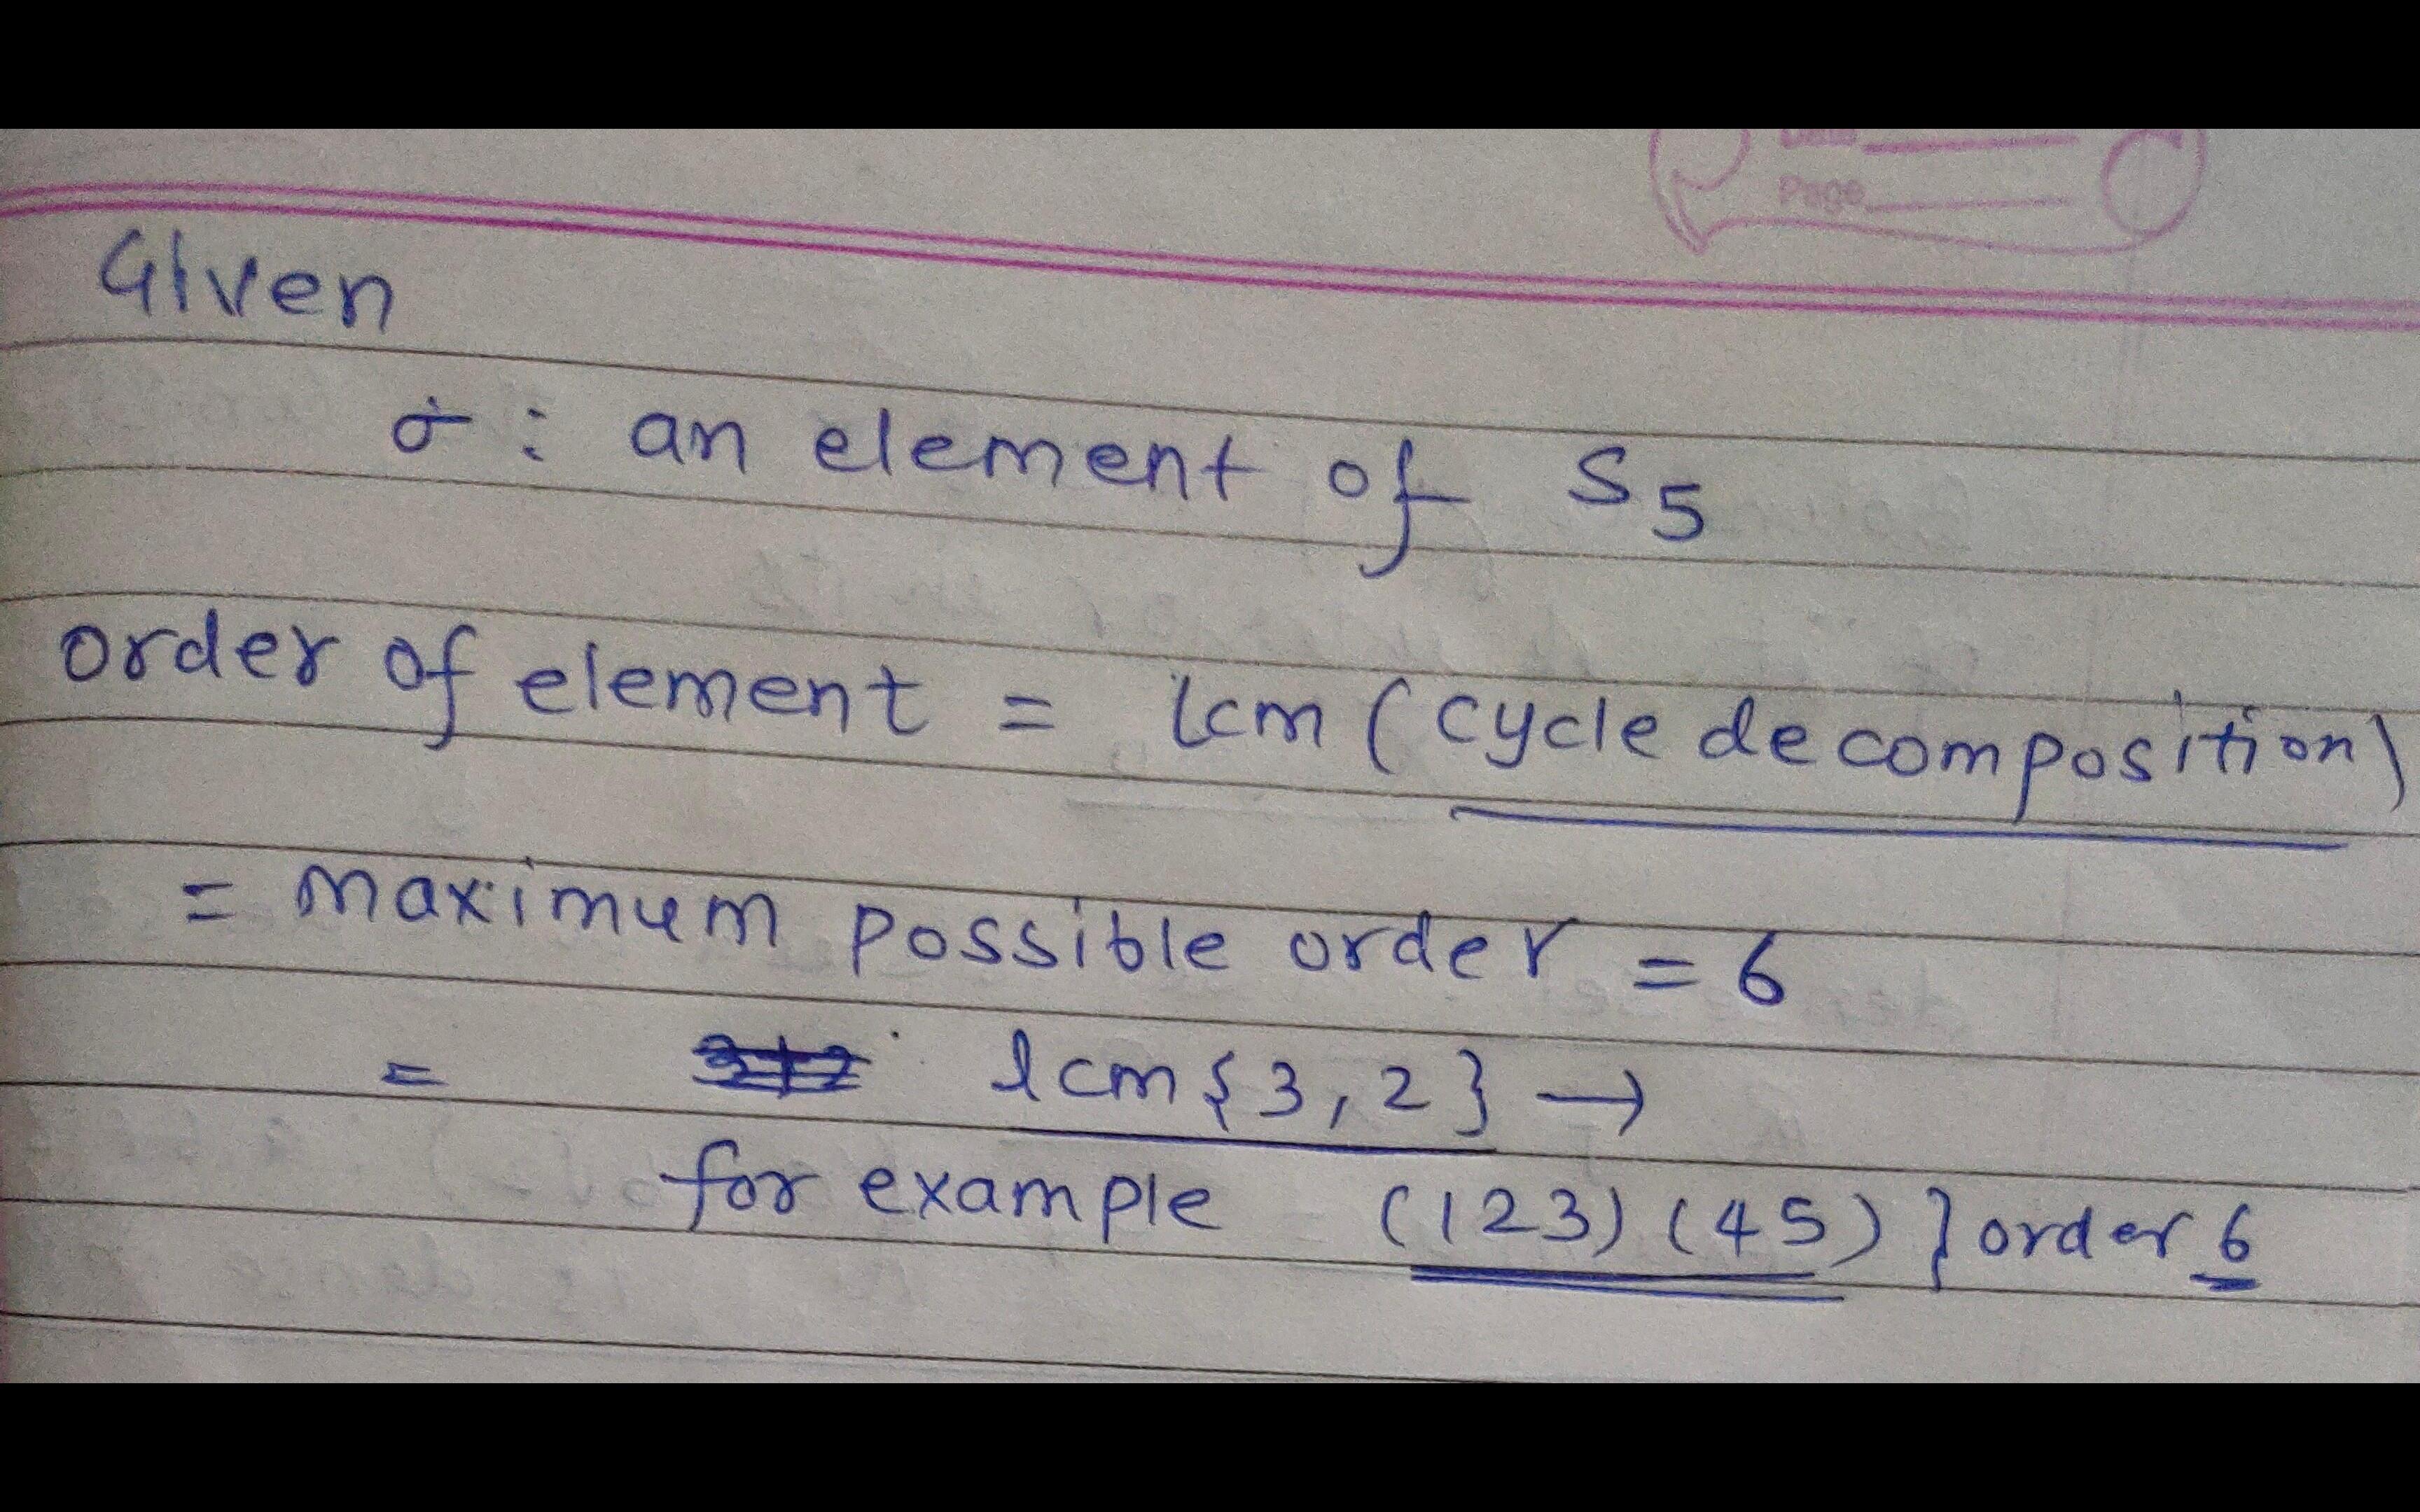 Date
Page
Given
σ : an element of S5
order of element = lcm (cycle decomposition)
= maximum possible order = 6
= lcm {3, 2} →
for example (123) (45) } order 6